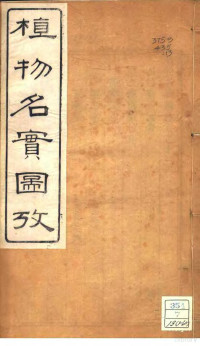 植物名實圖攷
351
7